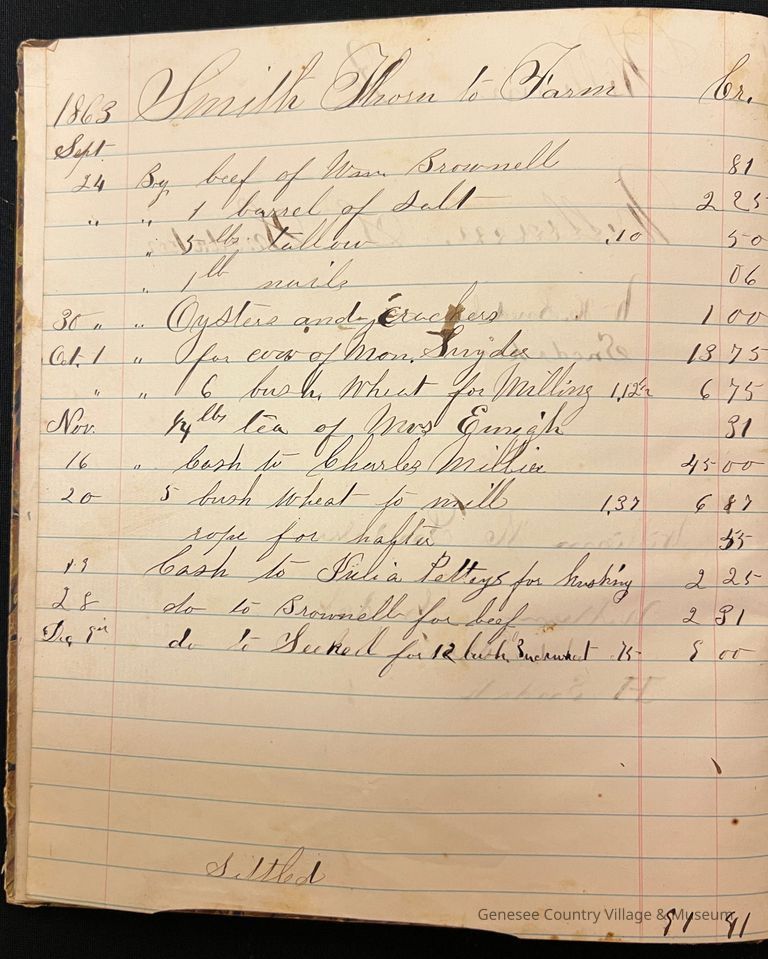 1863 Smith Thorn to Farm Cr.
Sept.
24 By beef of Wm. Brownell 81
" " 1 barrel of Salt 2 25
" 5 lbs tallow .10 50
" 1 lb nails 06
30 " " Oysters and crackers 1 00
Oct. 1 " for cow of Mon. Snyder 13 75
" " 6 bush. Wheat for Milling 1,12½ 6 75
Nov. ¼ lbs tea of Mrs Emigh 31
16 " Cash to Charles 45 00
20 5 bush Wheat to mill 1,37 6 87
rope for halter 55
Cash to Julia Petteys for husking 2 25
28 do to Brownell for beef 2 31
Dec do to for 12 bush Buckwheat .75 9 00
Settled
91 91
Genesee Country Village & Museum